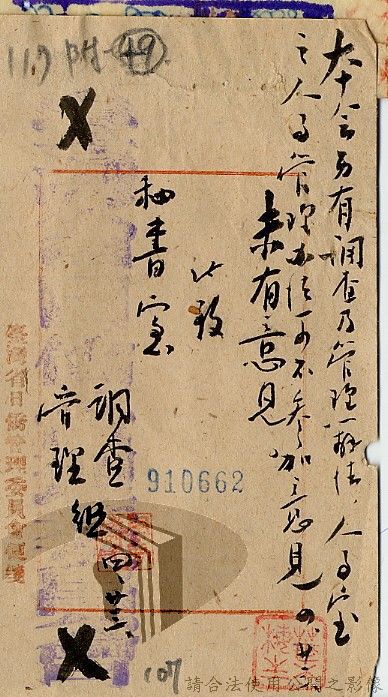 117 附-49
本會另有調查及管理辦法,人事室
之人事管理辦法可不參加意見 四、廿二
未有意見
此致
秘書室
調查
管理組 四、廿三、
臺灣省日僑管理委員會便箋
910662
107
請合法使用公開之影像